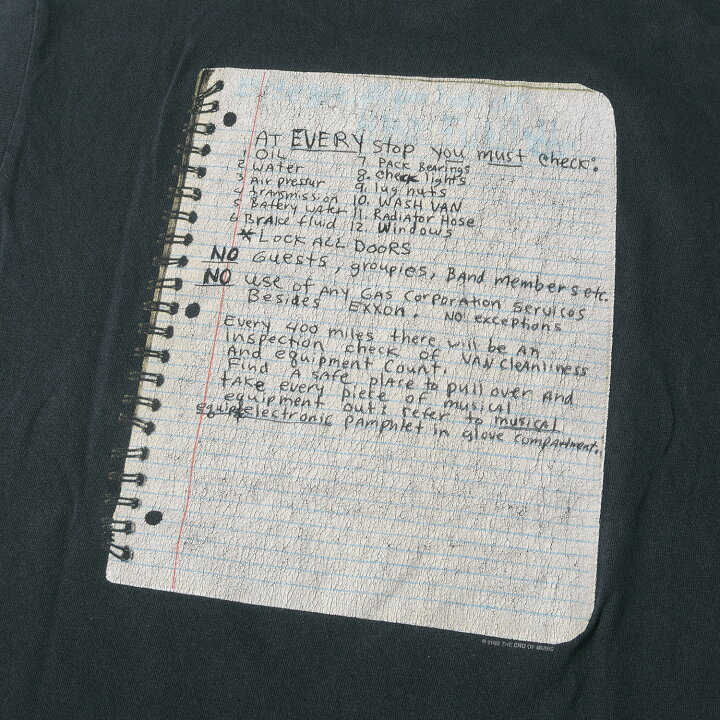 AT EVERY stop you must check:
1. OIL
2. WATER
3. Air pressur
4. Transmission
5. Battery water
6. Brake fluid
7. PACK Bearings
8. check lights
9. lug nuts
10. WASH VAN
11. Radiator Hose
12. Windows
* LOCK ALL DOORS
NO Guests, groupies, BAND members etc.
NO use of Any GAS Corporation Services
Besides EXXON. NO exceptions
Every 400 miles there will be AN
inspection check of VAN Cleanliness
And equipment count.
Find A safe place to pull over And
take every piece of musical
equipment out! refer to musical
electronic pamphlet in glove compartment.
© 2003 THE END OF MUSIC